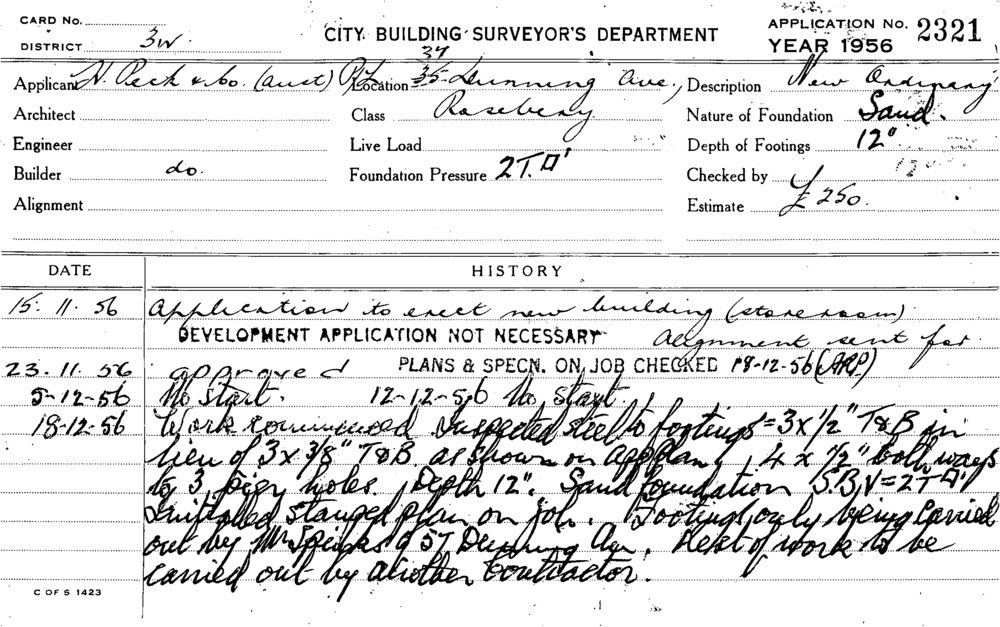 CARD No.
DISTRICT 3W
CITY BUILDING SURVEYOR'S DEPARTMENT
APPLICATION No. 2321
YEAR 1956
Applicant H. Peck & Co. (Aust) P/L
Location 35-37 Dunning Ave,
Description New Ordinary
Architect
Class Rosebery
Nature of Foundation Sand.
Engineer
Live Load
Depth of Footings 12"
Builder do.
Foundation Pressure 2T.□'
Checked by
Alignment
Estimate £250.
DATE HISTORY
15.11.56 Application to erect new building (storeroom)
DEVELOPMENT APPLICATION NOT NECESSARY Alignment sent for
23.11.56 approved PLANS & SPECN. ON JOB CHECKED 18-12-56 (ARP)
5-12-56 No Start. 12-12-56 No Start.
18-12-56 Work commenced Inspected steel to footings = 3 x 1/2" T&B in
lieu of 3 x 3/8" T&B as shown on app Plan, 4 x 1/2" both ways
to 3 pier holes. Depth 12". Sand foundation S.B.V = 2T□'
Initialled stamped plan on job. Footings only being carried
out by Mr Spinks of 57 Dunning Av. Rest of work to be
carried out by another contractor.
C OF S 1423